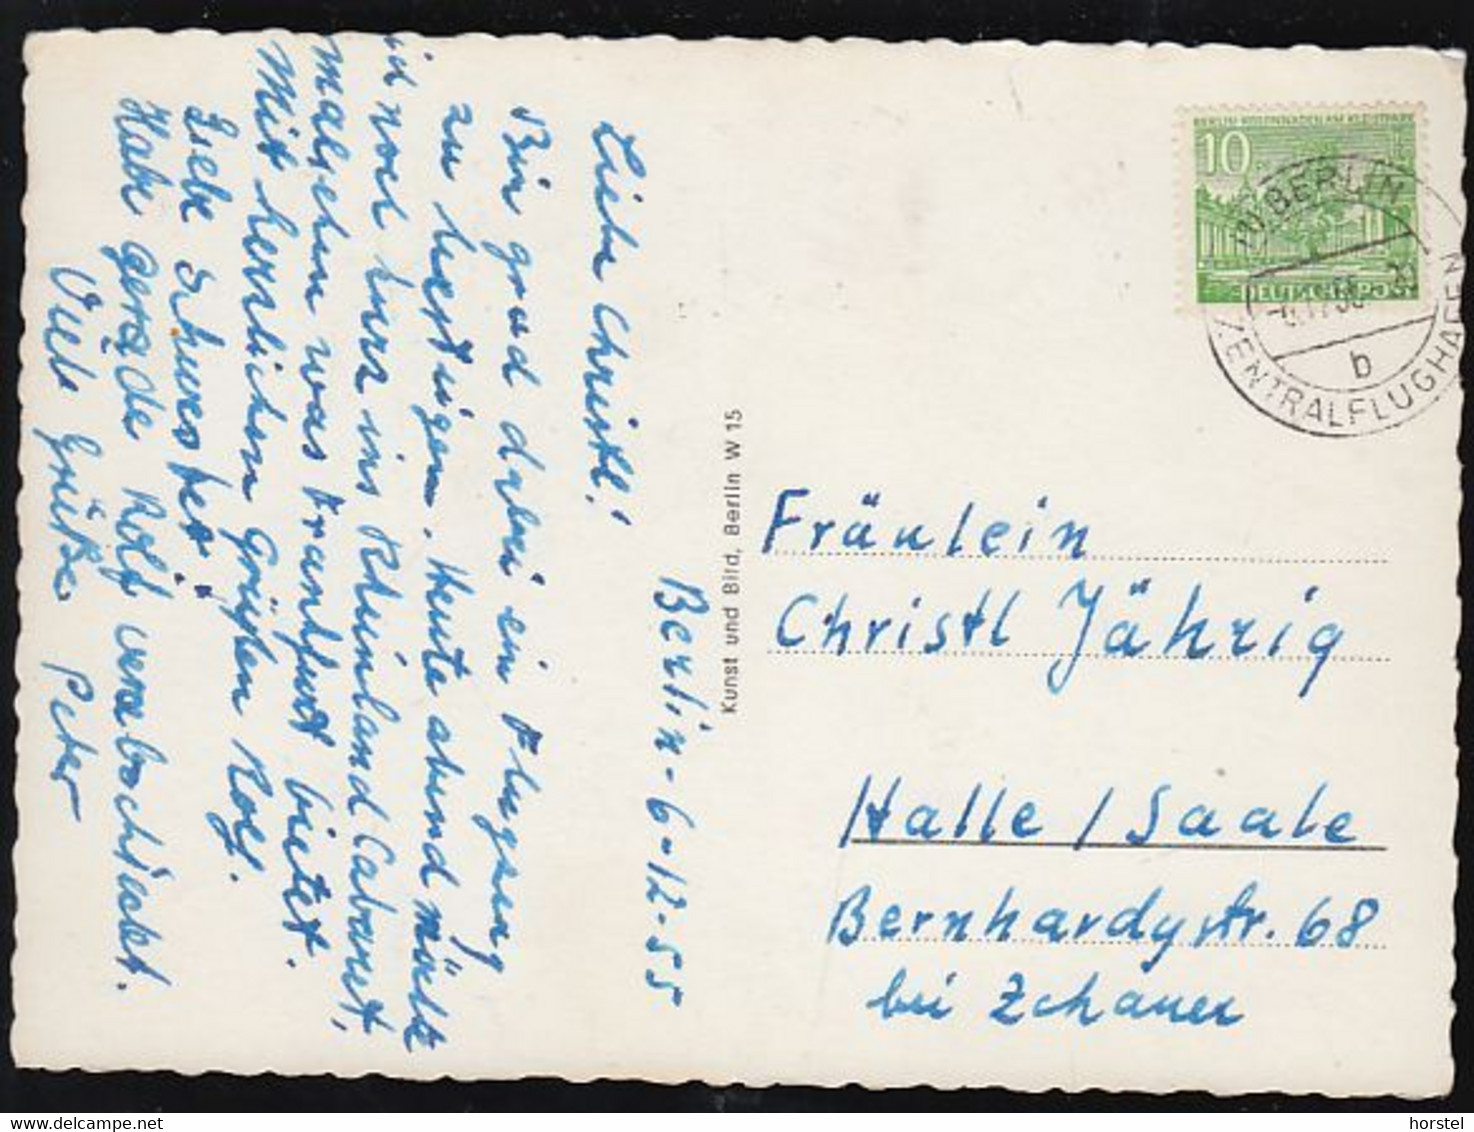 Berlin - 6 - 12 - 55
Liebe Christl!
Bin grad dabei ein Flugzeug
zu besteigen. Heute abend möchte
ich noch kurz ins Rheinland Cabaret,
mal sehen was Frankfurt bietet.
Mit herzlichen Grüßen Rolf.
Liebe Schwester!
Habe gerade Rolf verabschiedet.
Viele Grüße Peter
Kunst und Bild, Berlin W 15
10
DEUTSCHE POST
BERLIN
ZENTRALFLUGHAFEN
b
Fräulein
Christl Jährig
Halle / Saale
Bernhardystr. 68
bei Zschauer
delcampe.net
horstel